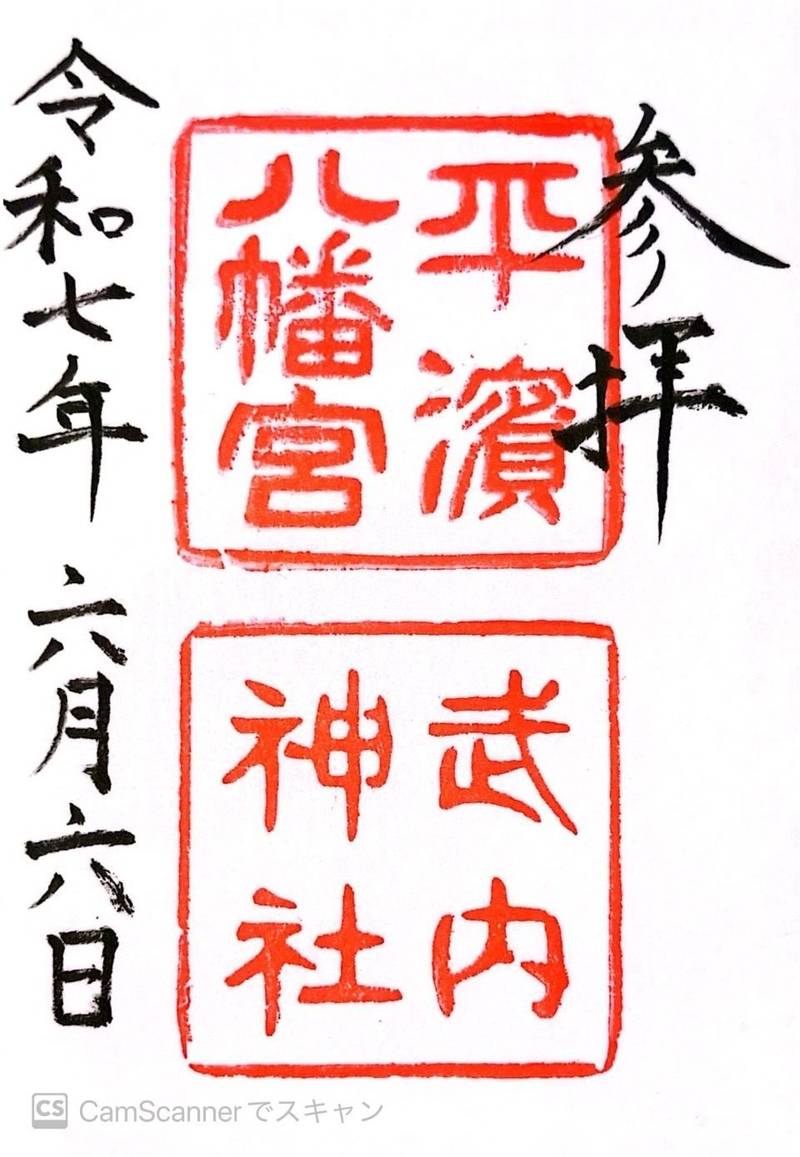 参拝
平濱
八幡宮
武内
神社
令和七年 六月六日
CamScannerでスキャン